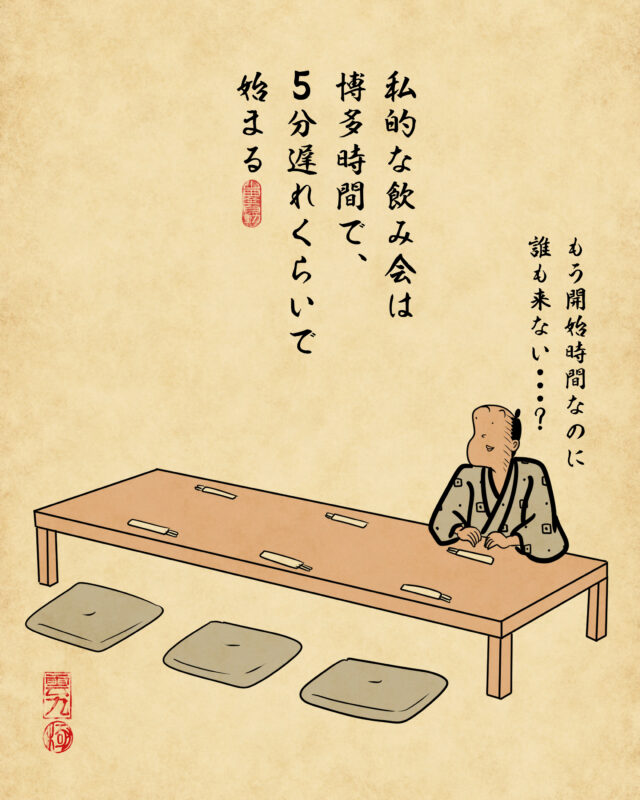 私的な飲み会は
博多時間で、
5分遅れくらいで
始まる
もう開始時間なのに
誰も来ない・・・？